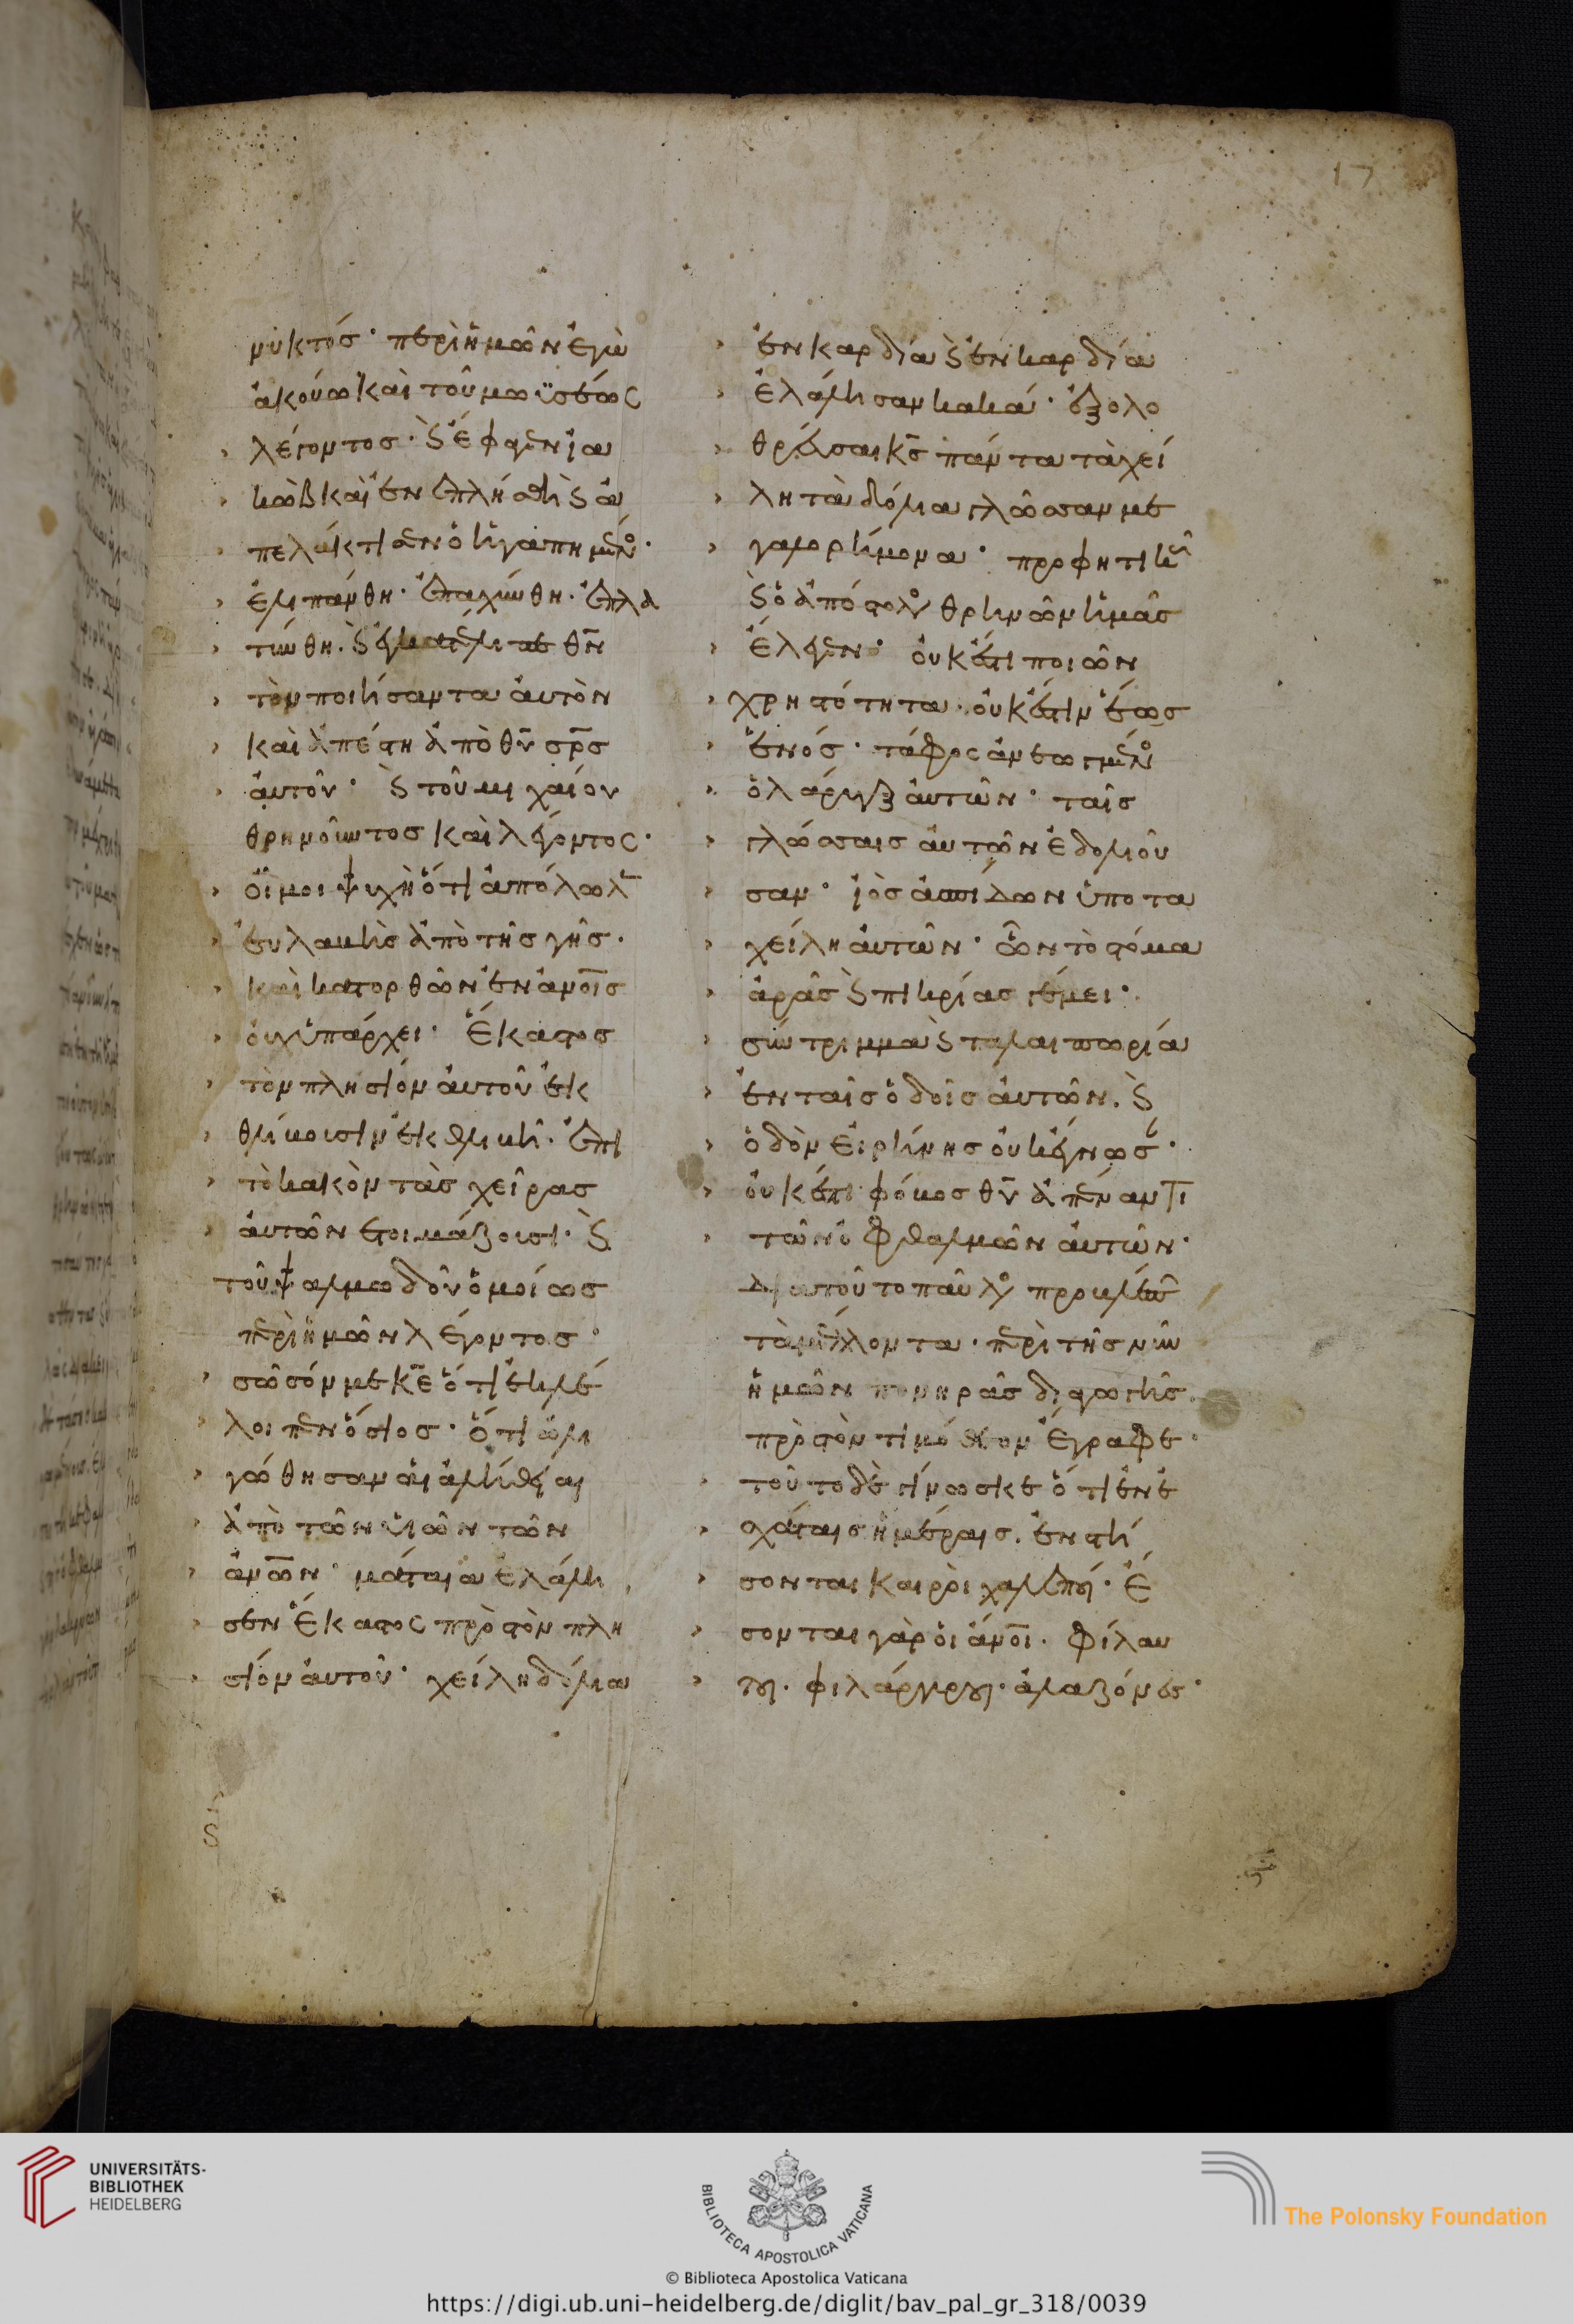 17
νυκτόσ· περὶ ἡμῶν ἐγὼ
ἀκούω καὶ τοῦ μωϋσέως
λέγοντος· καὶ ἔφαγεν ἰα
κὼβ καὶ ἐνεπλήσθη καὶ ἀ
πελάκτισεν ὁ ἠγαπημένος·
ἐλιπάνθη· ἐπαχύνθη· ἐπλα
τύνθη· καὶ ἐγκατέλιπε θν̄
τὸν ποιήσαντα αὐτὸν
καὶ ἀπέστη ἀπὸ θῡ σρ̄σ
αὐτοῦ· καὶ τοῦ μιχαίου
θρηνοῦντος καὶ λέγοντος·
οἴμοι ψυχὴ ὅτι ἀπόλωλεν
εὐλαβὴς ἀπὸ τῆς γῆς·
καὶ κατορθῶν ἐν ἀνο̄ις
οὐχ ὑπάρχει· ἕκαστος
τὸν πλησίον αὐτοῦ ἐκ
θλίβουσιν ἐκθλιβῇ· ἐπὶ
τὸ κακὸν τὰς χεῖρας
αὐτῶν ἑτοιμάζουσι· καὶ
τοῦ ψαλμωδοῦ ὁμοίως
περὶ ἡμῶν λέγοντος·
σῶσόν με κε̄ ὅτι ἐκλέ
λοιπεν ὅσιος· ὅτι ὠλι
γώθησαν αἱ ἀλήθειαι
ἀπὸ τῶν υἱῶν τῶν
ἀνω̄ν· μάταια ἐλάλη
σεν ἕκαστος πρὸς τὸν πλη
σίον αὐτοῦ· χείλη δόλια
ἐν καρδία καὶ ἐν καρδία
ἐλάλησαν κακά· ἐξολο
θρεύσαι κς̄ πάντα τὰ χεί
λη τὰ δόλια γλῶσσαν με
γαλορήμονα· προφητικ
καὶ ὁ ἀπόστολος θρηνῶν ἡμᾶς
ἔλεγεν· οὐκ ἔστι ποιῶν
χρηστότητα· οὐκ ἔστιν ἕως
ἑνός· τάφος ἀνεωγμένος
ὁ λάρυγξ αὐτῶν· ταῖς
γλώσσαις αὐτῶν ἐδολιοῦ
σαν· ἰὸς ἀσπίδων ὑπὸ τα
χείλη αὐτῶν· ὧν τὸ στόμα
ἀρᾶς καὶ πικρίας γέμει·
σύντριμμα καὶ ταλαιπωρία
ἐν ταῖς ὁδοῖς αὐτῶν· καὶ
ὁδὸν εἰρήνης οὐκ ἔγνωσ·
οὐκ ἔστι φόβος θῡ ἀπέναντι
τῶν ὀφθαλμῶν αὐτῶν·
διὰ τοῦτο παῦλος προβλέπων
τὰ μέλλοντα· περὶ τῆς νῦν
ἡμῶν πονηρᾶς διαγωγῆς
πρὸς τὸν τιμόθεον ἔγραφε·
τοῦτο δὲ γίνωσκε ὅτι ἐν ἐ
σχάταις ἡμέραις· ἐνστή
σονται καιροὶ χαλεποί· ἔ
σονται γὰρ οἱ ἄνο̄ι· φίλαυ
τοι· φιλάργυροι· ἀλαζόνες·
UNIVERSITÄTS-
BIBLIOTHEK
HEIDELBERG
BIBLIOTECA APOSTOLICA VATICANA
The Polonsky Foundation
© Biblioteca Apostolica Vaticana
https://digi.ub.uni-heidelberg.de/diglit/bav_pal_gr_318/0039